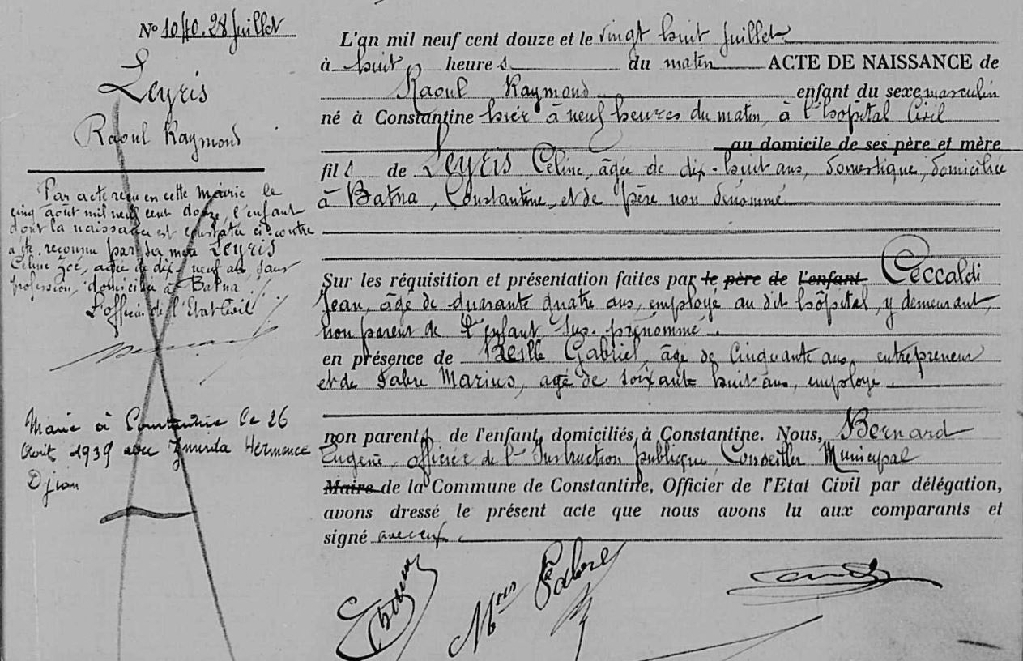 N° 1040. 28 Juillet
Leyris
Raoul Raymond
Par acte reçu en cette mairie le
cinq août mil neuf cent douze, l'enfant
dont la naissance est constatée ci-contre
a été reconnu par sa mère Leyris
Céline Zoé, âgée de dix-neuf ans sans
profession, domiciliée à Batna.
L'officier de l'Etat-Civil
Marié à Constantine le 26
Août 1939 avec Hermence
Djian
L'an mil neuf cent douze et le vingt huit Juillet
à huit heures du matin ACTE DE NAISSANCE de
Raoul Raymond enfant du sexe masculin
né à Constantine hier à neuf heures du matin, à l'hôpital Civil
au domicile de ses père et mère
fils de Leyris Céline, âgée de dix-huit ans, domestique, domiciliée
à Batna, Constantine, et de père non dénommé
Sur les réquisition et présentation faites par le père de l'enfant Ceccaldi
Jean, âgé de quarante quatre ans, employé au dit hôpital, y demeurant,
non parent de l'enfant sus-prénommé.
en présence de Gabriel, âgé de cinquante ans, entrepreneur
et de Fabre Marius, âgé de soixante huit ans, employé.
non parents de l'enfant domiciliés à Constantine. Nous, Bernard
Eugène, officier de l'Instruction publique, Conseiller Municipal
Maire de la Commune de Constantine, Officier de l'Etat Civil par délégation,
avons dressé le présent acte que nous avons lu aux comparants et
signé avec eux.
Fabre